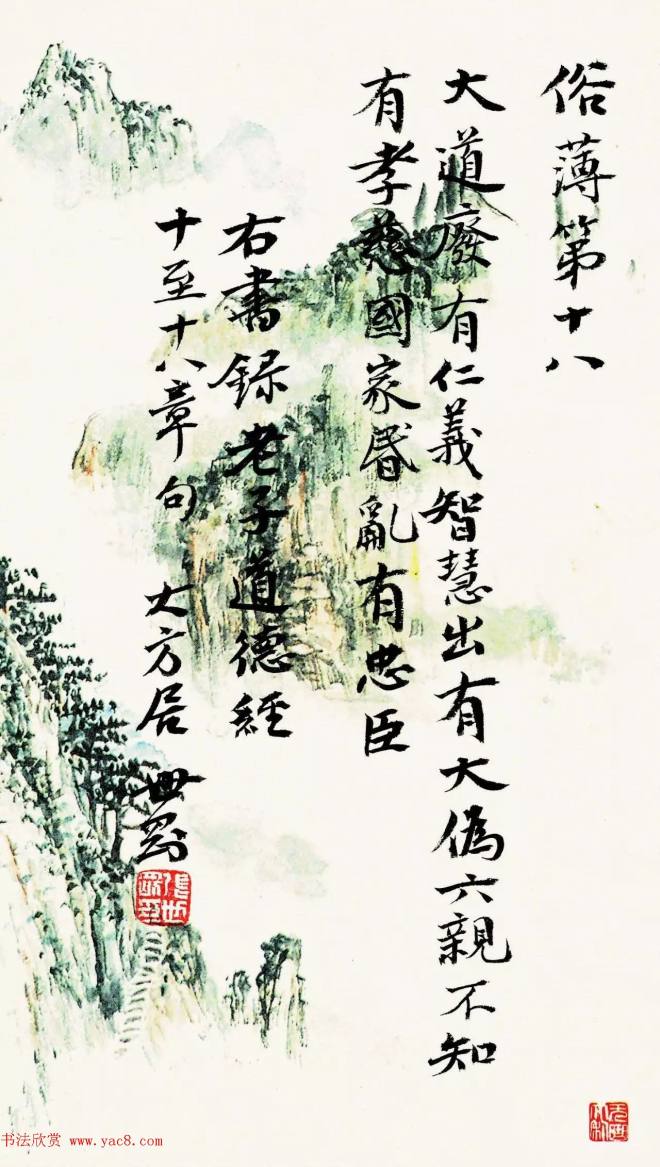 俗薄第十八
大道廢有仁義智慧出有大偽六親不知
有孝慈國家昬亂有忠臣
右書録老子道德經
十至十八章句 大方居 世剛
书法欣赏 www.yac8.com